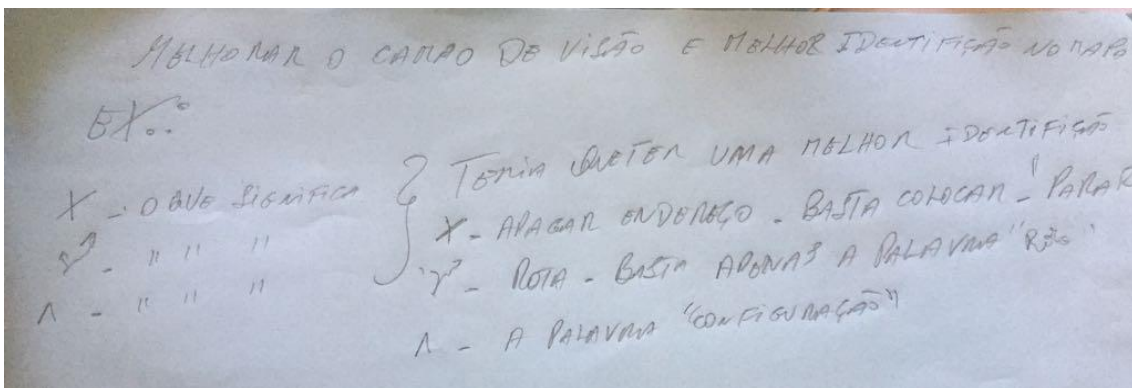 MELHORAR O CAMPO DE VISÃO E MELHOR IDENTIFIÇÃO NO MAPA
EX.:
X - O QUE SIGNIFICA
" " "
Λ - " " "
TERIA QUE TER UMA MELHOR IDENTIFIÇÃO
X - APAGAR ENDEREÇO - BASTA COLOCAR - "PARAR
ROTA - BASTA APENAS A PALAVRA
Λ - A PALAVRA "CONFIGURAÇÃO"